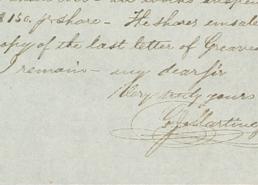 $150. pr share – The shares unsale
opy of the last letter of Greaves
I remain – my dear sir
Very truly yours